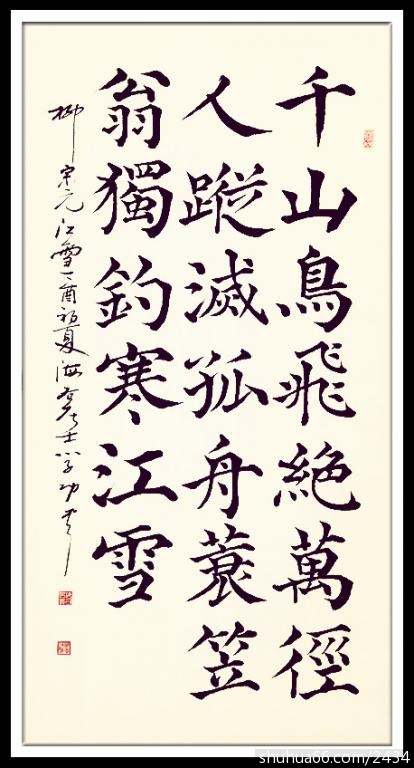 千山鳥飛絕萬徑
人蹤滅孤舟蓑笠
翁獨釣寒江雪
柳宗元江雪丁酉初夏海
shuhua66.com/2434